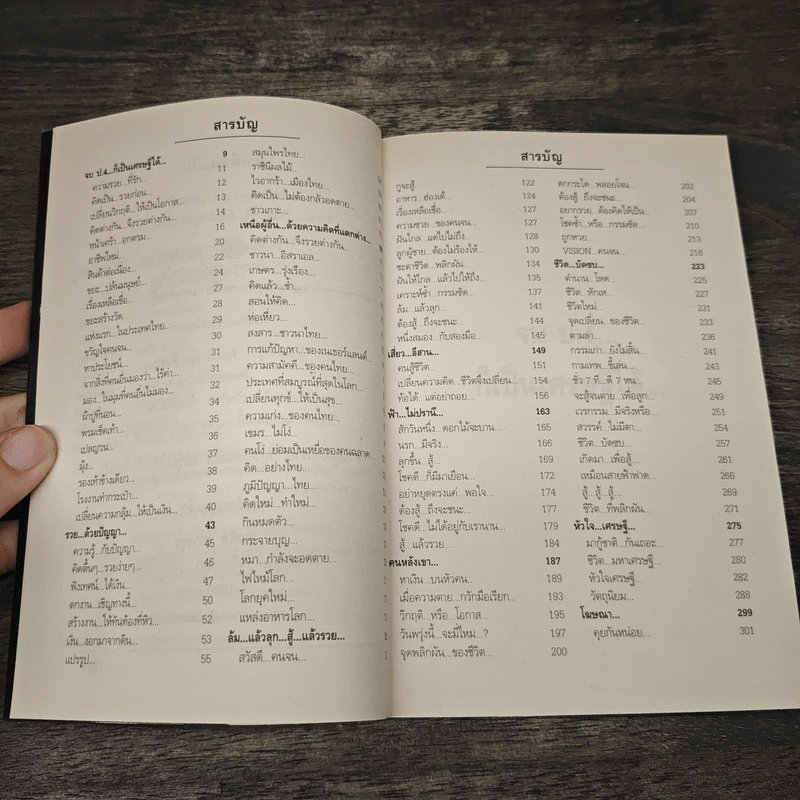 สารบัญ
จบ ป.4...ก็เป็นเศรษฐีได้... 9
ความรวย...ที่รัก... 11
คิดเป็น...รวยก่อน... 12
เปลี่ยนวิกฤติ...ให้เป็นโอกาส... 13
คิดต่างกัน...จึงรวยต่างกัน... 14
หน้าเศร้า...อกตรม... 16
อาชีพใหม่... 20
สินค้าต่อเนื่อง... 22
ขยะ...ปล้นมนุษย์... 24
เรื่องเหลือเชื่อ... 27
ขยะสร้างวัด... 28
แห่งแรก...ในประเทศไทย... 29
ขวัญใจคนจน... 30
หาประโยชน์... 31
จากสิ่งที่คนอื่นมองว่า...ไร้ค่า... 31
มอง...ในมุมที่คนอื่นไม่มอง... 32
ผ้าปูที่นอน... 34
พรมเช็ดเท้า... 35
เปลญวน... 36
มุ้ง... 37
รองเท้าข้างเดียว... 38
โรงงานทำกระเป๋า... 39
เปลี่ยนความกลุ้ม...ให้เป็นเงิน... 40
รวย...ด้วยปัญญา... 43
ความรู้...กับปัญญา... 45
คิดตื้นๆ...รวยง่ายๆ... 46
ฟังเทศน์...ได้เงิน... 47
ตกงาน...เชิญทางนี้... 50
สร้างงาน...ให้ทันท้องที่หิว... 52
เงิน...งอกมาจากดิน... 53
แปรรูป... 55
สมุนไพรไทย...
ราชินีผลไม้...
ไวอากร้า...เมืองไทย...
คิดเป็น...ไม่ต้องกลัวอดตาย...
ชาวเกาะ...
เหนือผู้อื่น...ด้วยความคิดที่แตกต่าง...
คิดต่างกัน...จึงรวยต่างกัน...
ชาวนา...อิสราเอล...
เกษตร...รุ่งเรือง...
คิดแล้ว...ช้ำ...
สอนให้คิด...
ท่อเหี่ยว...
สงสาร...ชาวนาไทย...
การแก้ปัญหา...ของเนเธอร์แลนด์...
ความสามัคคี...ของคนไทย...
ประเทศที่สมบูรณ์ที่สุดในโลก...
เปลี่ยนทุกข์...ให้เป็นสุข...
ความเก่ง...ของคนไทย...
เขมร...ไม่โง่...
คนโง่...ย่อมเป็นเหยื่อของคนฉลาด...
คิด...อย่างไทย...
ภูมิปัญญา...ไทย...
คิดใหม่...ทำใหม่...
กินหมดตัว...
กระจายบุญ...
หมา...กำลังจะอดตาย...
ไฟไหม้โลก...
โลกยุคใหม่...
แหล่งอาหารโลก...
ล้ม...แล้วลุก...สู้...แล้วรวย...
สวัสดี...คนจน...
สารบัญ
กูจะสู้... 122
อาหาร...ฮ่องเต้... 124
เรื่องเหลือเชื่อ... 127
ความซวย...ของคนจน... 127
ฝันไกล...แต่ไปไม่ถึง... 128
ลูกผู้ชาย...ต้องไม่ร้องไห้... 130
ชะตาชีวิต...พลิกผัน... 134
ฝันให้ไกล...แล้วไปให้ถึง... 135
เคราะห์ซ้ำ...กรรมซัด... 137
ล้ม...แล้วลุก... 141
ต้องสู้...ถึงจะชนะ... 144
หนึ่งสมอง...กับสองมือ... 145
เสี่ยว...อีสาน... 149
คนสู้ชีวิต... 151
เปลี่ยนความคิด...ชีวิตจึงเปลี่ยน... 154
ท้อได้...แต่อย่าถอย... 156
ฟ้า...ไม่ปรานี... 163
สักวันหนึ่ง...ดอกไม้จะบาน... 165
นรก...มีจริง... 166
ลุกขึ้น...สู้... 169
โชคดี...ก็มีมาเยือน... 172
อย่าหยุดตรงแค่...พอใจ... 174
ต้องสู้...ถึงจะชนะ... 177
โชคดี...ไม่ได้อยู่กับเรานาน... 179
สู้...แล้วรวย... 184
คนหลังเขา... 187
หาเงิน...บนหัวคน... 189
เมื่อความตาย...กวักมือเรียก... 193
วิกฤติ...หรือ...โอกาส... 195
วันพรุ่งนี้...จะมีไหม...? 197
จุดพลิกผัน...ของชีวิต... 200
ตกกระได...พลอยโจน... 202
ต้องสู้...ถึงจะชนะ... 204
อยากรวย...ต้องคิดให้เป็น... 207
โชคช้ำ...หรือ...กรรมซัด... 210
ถูกหวย... 213
VISION...คนจน... 216
ชีวิต...บัดซบ... 223
ตำนาน...โหด... 225
ชีวิต...หักเห... 227
ชีวิตใหม่... 231
จุดเปลี่ยน...ของชีวิต... 233
ตามล่า... 236
กรรมเก่า...ยังไม่สิ้น... 241
กามเทพ...ขี้เล่น... 243
ชั่ว 7 ที...ดี 7 หน... 245
จะสู้จนตาย...เพื่อลูก... 249
เวรกรรม...มีจริงหรือ... 251
สวรรค์...ไม่มีตา... 254
ชีวิต...บัดซบ... 257
เกิดมา...เพื่อสู้... 261
เหมือนสายฟ้าฟาด... 266
สู้...สู้...สู้... 269
ชีวิต...ที่พลิกผัน... 271
หัวใจ...เศรษฐี... 275
มากู้ชาติ...กันเถอะ... 277
ชีวิต...มหาเศรษฐี... 280
หัวใจเศรษฐี... 282
วัตถุนิยม... 288
โฆษณา... 299
คุยกันหน่อย... 301